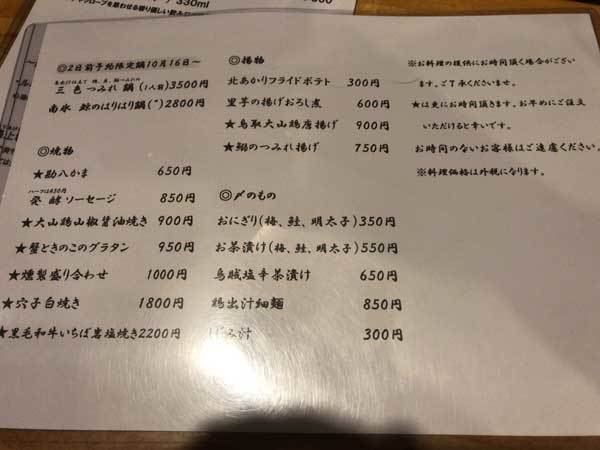 330ml
◎2日前予約限定鍋10月16日～
三色つみれ鍋(1人前)3500円
南氷 鯨のはりはり鍋(〃)2800円
◎焼物
★勘八かま 650円
ハーフは450円
発酵ソーセージ 850円
★大山鶏山椒醤油焼き 900円
★蟹ときのこのグラタン 950円
★燻製盛り合わせ 1000円
★穴子白焼き 1800円
★黒毛和牛いちぼ岩塩焼き2200円
◎揚物
北あかりフライドポテト 300円
里芋の揚げおろし煮 600円
★鳥取大山鶏唐揚げ 900円
★鰯のつみれ揚げ 750円
◎〆のもの
おにぎり(梅、鮭、明太子)350円
お茶漬け(梅、鮭、明太子)550円
烏賊塩辛茶漬け 650円
鶏出汁細麺 850円
しじみ汁 300円
※お料理の提供にお時間頂く場合がござい
ます。ご了承くださいませ。
★は更にお時間頂きます。お早めにご注文
いただけると幸いです。
お時間のないお客様はご遠慮ください。
※料理価格は外税になります。